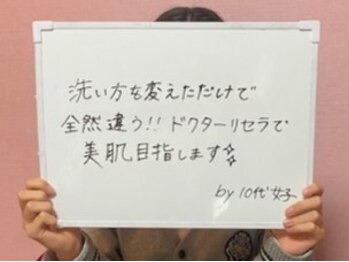 洗い方を変えただけで
全然違う!! ドクターリセラで
美肌目指します☆
by 10代女子